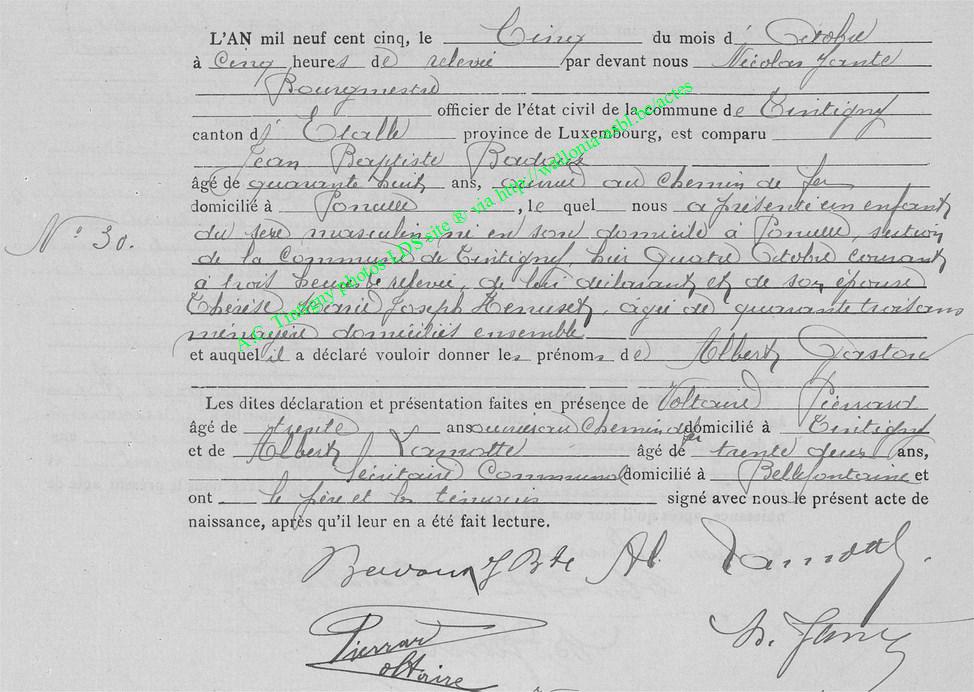 L'AN mil neuf cent cinq, le Cinq du mois d' Octobre
à Cinq heures de relevée par devant nous Nicolas Jante
Bourgmestre
officier de l'état civil de la commune de Tintigny
canton d' Etalle province de Luxembourg, est comparu
Jean Baptiste
âgé de quarante huit ans, ouvrier au chemin de fer
domicilié à Poncelle, le quel nous a présenté un enfant
N° 30.
du sexe masculin né en son domicile à Poncelle section
de la Commune de Tintigny, hier quatre Octobre courant
à trois heures de relevée, de lui déclarant et de son épouse
Thérèse Marie Joseph Henuset, âgée de quarante trois ans
ménagère domiciliés ensemble
et auquel il a déclaré vouloir donner les prénoms de Albert Gaston
Les dites déclaration et présentation faites en présence de Voltaire Pierrard
âgé de trente ans ouvrier au Chemin de fer domicilié à Tintigny
et de Albert Lamotte âgé de trente deux ans,
Secrétaire Communal domicilié à Bellefontaine et
ont le père et les témoins signé avec nous le présent acte de
naissance, après qu'il leur en a été fait lecture.
J Bte Al. Lamotte.
Pierrard
Voltaire
N. Jante
A.C. Tintigny photos LDS site ® via http://wallonia-asbl.be/actes